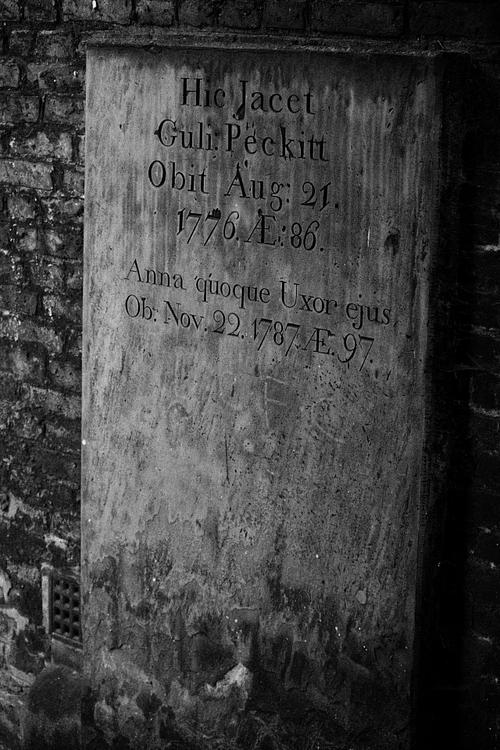 Hic Jacet
Guli: Peckitt
Obit Aug: 21.
1776. Æ: 86.
Anna quoque Uxor ejus
Ob: Nov. 22. 1787. Æ. 97.